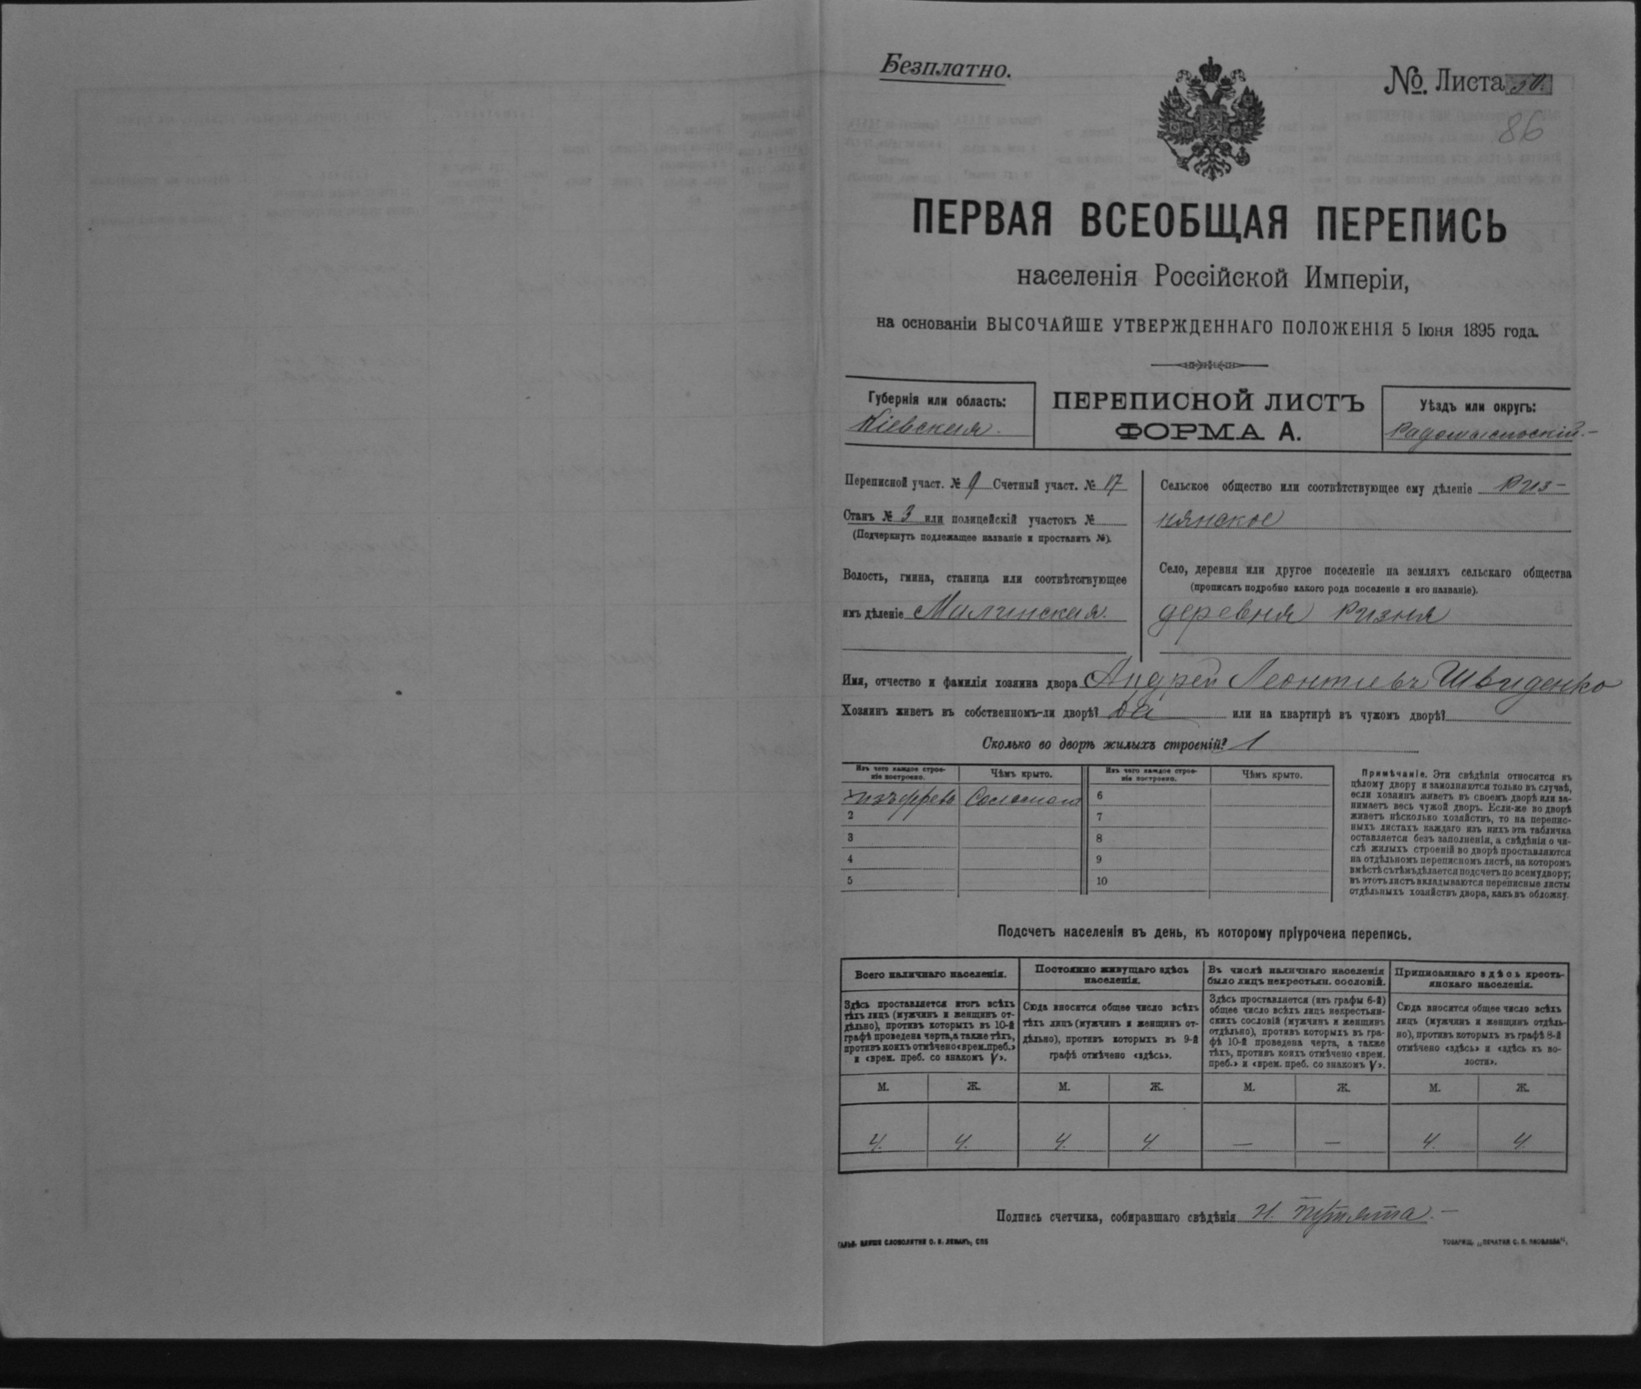 Безплатно.
№. Листа 50.
86
ПЕРВАЯ ВСЕОБЩАЯ ПЕРЕПИСЬ
населенія Россійской Имперіи,
на основаніи ВЫСОЧАЙШЕ УТВЕРЖДЕННАГО ПОЛОЖЕНІЯ 5 Іюня 1895 года.
Губернія или область:
Кіевская.
ПЕРЕПИСНОЙ ЛИСТЪ
ФОРМА А.
Уѣздъ или округъ:
Радомысльскій.-
Переписной участ. № 9 Счетный участ. № 17
Станъ № 3 или полицейскій участокъ №
(Подчеркнуть подлежащее названіе и проставить №).
Волость, гмина, станица или соотвѣтствующее
имъ дѣленіе Малинская.
Сельское общество или соотвѣтствующее ему дѣленіе Риз-
нянское
Село, деревня или другое поселеніе на земляхъ сельскаго общества
(прописать подробно какого рода поселеніе и его названіе).
деревня Ризня
Имя, отчество и фамилія хозяина двора Андрей Леонтіевъ Швиденко
Хозяинъ живетъ въ собственномъ-ли дворѣ? да или на квартирѣ въ чужомъ дворѣ?
Сколько во дворѣ жилыхъ строеній? 1
Изъ чего каждое строе-
ніе построено.
Чѣмъ крыто.
Изъ чего каждое строе-
ніе построено.
Чѣмъ крыто.
изъ дерева Соломой 6
2 7
3 8
4 9
5 10
Примѣчаніе. Эти свѣдѣнія относятся къ
цѣлому двору и заполняются только въ случаѣ,
если хозяинъ живетъ въ своемъ дворѣ или за-
нимаетъ весь чужой дворъ. Если-же во дворѣ
живетъ нѣсколько хозяйствъ, то на перепис-
ныхъ листахъ каждаго изъ нихъ эта табличка
оставляется безъ заполненія, а свѣдѣнія о чи-
слѣ жилыхъ строеній во дворѣ проставляются
на отдѣльномъ переписномъ листѣ, на которомъ
вмѣстѣ съ тѣмъ дѣлается подсчетъ по всему двору;
въ этотъ листъ вкладываются переписные листы
отдѣльныхъ хозяйствъ двора, какъ въ обложку.
Подсчетъ населенія въ день, къ которому пріурочена перепись.
Всего наличнаго населенія.
Здѣсь проставляется итогъ всѣхъ
тѣхъ лицъ (мужчинъ и женщинъ от-
дѣльно), противъ которыхъ въ 10-й
графѣ проведена черта, а также тѣхъ,
противъ коихъ отмѣчено «врем. преб.»
и «врем. преб. со знакомъ V».
Постоянно живущаго здѣсь
населенія.
Сюда вносится общее число всѣхъ
тѣхъ лицъ (мужчинъ и женщинъ от-
дѣльно), противъ которыхъ въ 9-й
графѣ отмѣчено «здѣсь».
Въ числѣ наличнаго населенія
было лицъ некрестьян. сословій.
Здѣсь проставляется (изъ графы 6-й)
общее число всѣхъ лицъ некрестьян-
скихъ сословій (мужчинъ и женщинъ
отдѣльно), противъ которыхъ въ гра-
фѣ 10-й проведена черта, а также
тѣхъ, противъ коихъ отмѣчено «врем.
преб.» и «врем. преб. со знакомъ V».
Приписаннаго здѣсь кресть-
янскаго населенія.
Сюда вносится общее число всѣхъ
лицъ (мужчинъ и женщинъ отдѣль-
но), противъ которыхъ въ графѣ 8-й
отмѣчено «здѣсь» и «здѣсь въ во-
лости».
М. Ж. М. Ж. М. Ж. М. Ж.
4. 4. 4. 4 — — 4. 4
Подпись счетчика, собиравшаго свѣдѣнія Н. Путята.-
СЛОВОЛИТНИ О. И. ЛЕМАНЪ, СПБ
ТОВАРИЩ. „ПЕЧАТНЯ С. П. ЯКОВЛЕВА“.